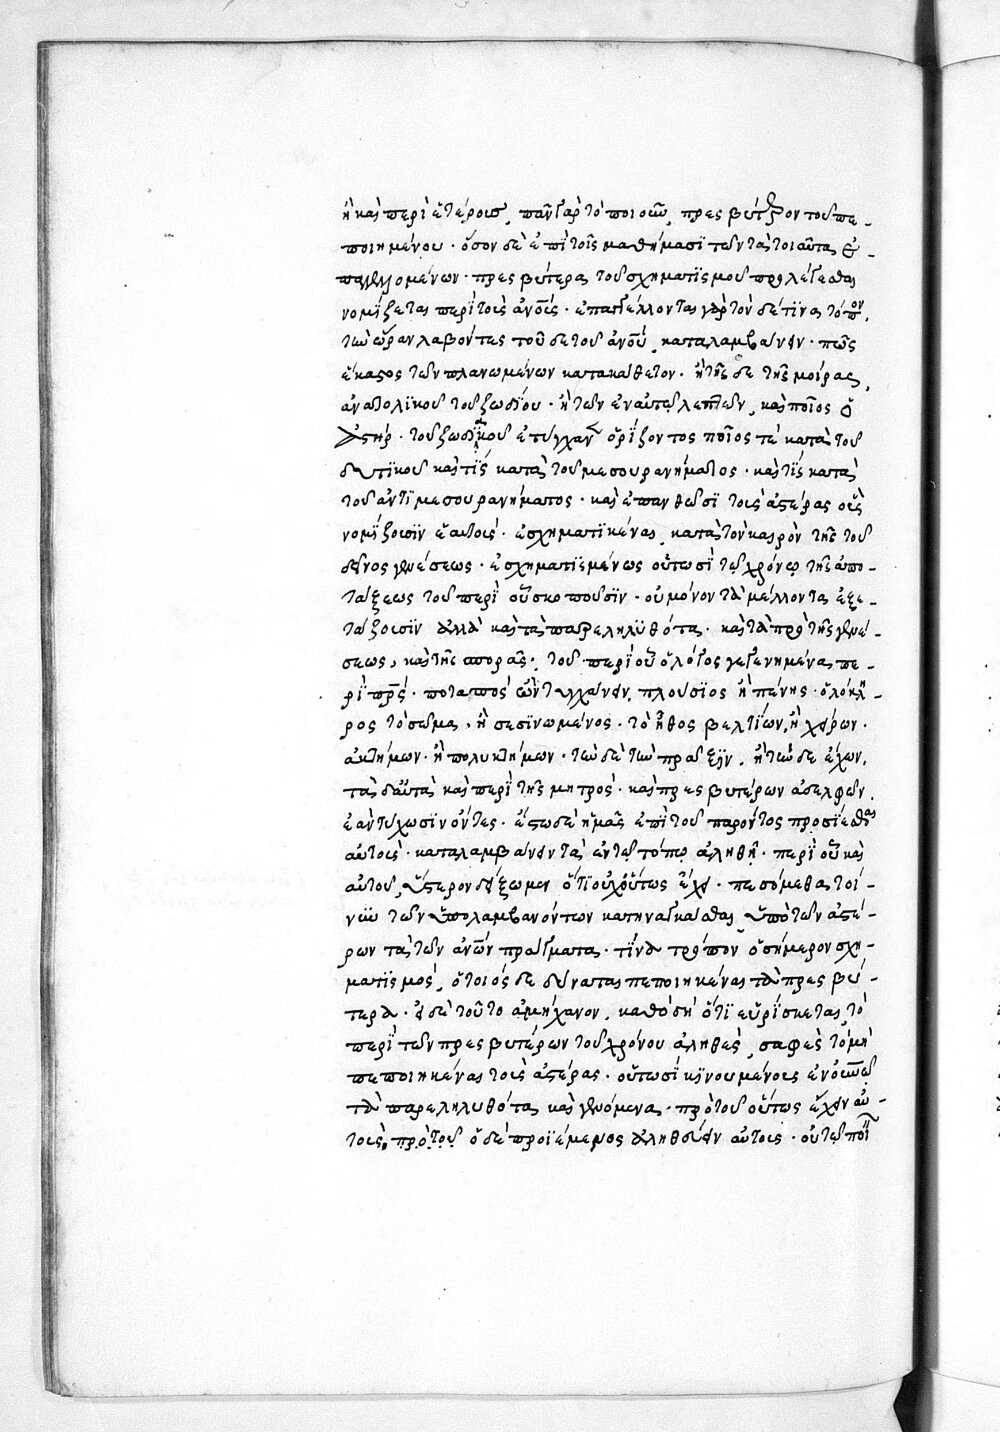 ἢ καὶ περὶ ἑτέροις, πᾶν γὰρ τὸ ποιοῦν, πρεσβύτερον τοῦ πε-
ποιημένου· ὅσον δὲ ἐπὶ τοῖς μαθήμασι τῶν τὰ τοιαῦτα ἐ-
παγγελλομένων· πρεσβύτερα τοῦ σχηματισμοῦ προλέγεσθαι
νομίζεται περὶ τοὺς ἀνους· ἐπαγγέλλονται γὰρ τὸν δέ τινα τόπον,
τὴν ὥραν λαβόντες τοῦδε τοῦ ἀνου, καταλαμβάνειν· πῶς
ἕκαστος τῶν πλανωμένων κατὰ κάθετον· ἢ τῆσδε τῆς μοίρας,
ἀνατολικοῦ τοῦ ζωδίου· ἢ τῶν ἐν αὐτῷ λεπτῶν, καὶ ποῖος
ἀστὴρ· τοῦ ζωδιακοῦ ἐτύγχανε ὁρίζοντος ποῖος τε κατὰ τοῦ
δυτικοῦ καὶ τίς κατὰ τοῦ μεσουρανήματος· καὶ τίς κατὰ
τοῦ ἀντιμεσουρανήματος· καὶ ἐπὰν θῶσι τοὺς ἀστέρας οὓς
νομίζουσιν ἑαυτοῖς· ἐσχηματικέναι, κατὰ τὸν καιρὸν τῆς τοῦ
δεῖνος γενέσεως· ἐσχηματισμένως οὕτωσι τῷ χρόνῳ τῆς ἀπο-
τάξεως τοῦ περὶ οὗ σκοποῦσιν· οὐ μόνον τὰ μέλλοντα ἐξε-
τάζουσιν ἀλλὰ καὶ τὰ παρεληλυθότα· καὶ τὰ πρὸ τῆς γενέ-
σεως, καὶ τῆς σπορᾶς· τοῦ περὶ οὗ ὁ λόγος γεγενημένα, πε-
ρὶ πρς· ποταπὸς ὢν τυγχάνει, πλούσιος ἢ πένης· ὁλόκλη-
ρος τὸ σῶμα, ἢ σεσινωμένος· τὸ ἦθος βελτίων, ἢ χείρων·
ἀκτήμων· ἢ πολυκτήμων· τήνδε τὴν πρᾶξιν, ἢ τήνδε ἔχων,
τὰ δ' αὐτὰ καὶ περὶ τῆς μητρὸς· καὶ πρεσβυτέρων ἀδελφῶν,
ἐὰν τύχωσιν ὄντες· ἔστω δὲ ἡμᾶς ἐπὶ τοῦ παρόντος προσίεσθαι
αὐτοὺς· καταλαμβάνειν τὰ ἐν τῷ τόπῳ ἀληθῆ· περὶ οὗ καὶ
αὐτοῦ, ὕστερον δείξωμεν ὅτι οὐχ οὕτως ἔχει· πευσόμεθα τοί-
νυν τῶν ὑπολαμβανόντων κατηναγκάσθαι, ὑπὸ τῶν ἀστέ-
ρων τὰ τῶν ἀνων πράγματα· τίνα τρόπον ὁ σήμερον σχη-
ματισμός, ὁ τοιόσδε δύναται πεποιηκέναι τὰ πρεσβύ-
τερα· εἰ δὲ τοῦτο ἀμήχανον, καθὸ δὴ ὅτι εὑρίσκεται, τὸ
περὶ τῶν πρεσβυτέρων τοῦ χρόνου ἀληθὲς, σαφὲς τὸ μὴ
πεποιηκέναι τοὺς ἀστέρας· οὑτωσὶ κινουμένους ἐν οὐνῷ
τὰ παρεληλυθότα καὶ γενόμενα· πρὸ τοῦ οὕτως ἔχειν αὐ-
τούς, πρὸ τοῦ ὁ δὲ προϊέμενος ἀληθεύειν αὐτοὺς·